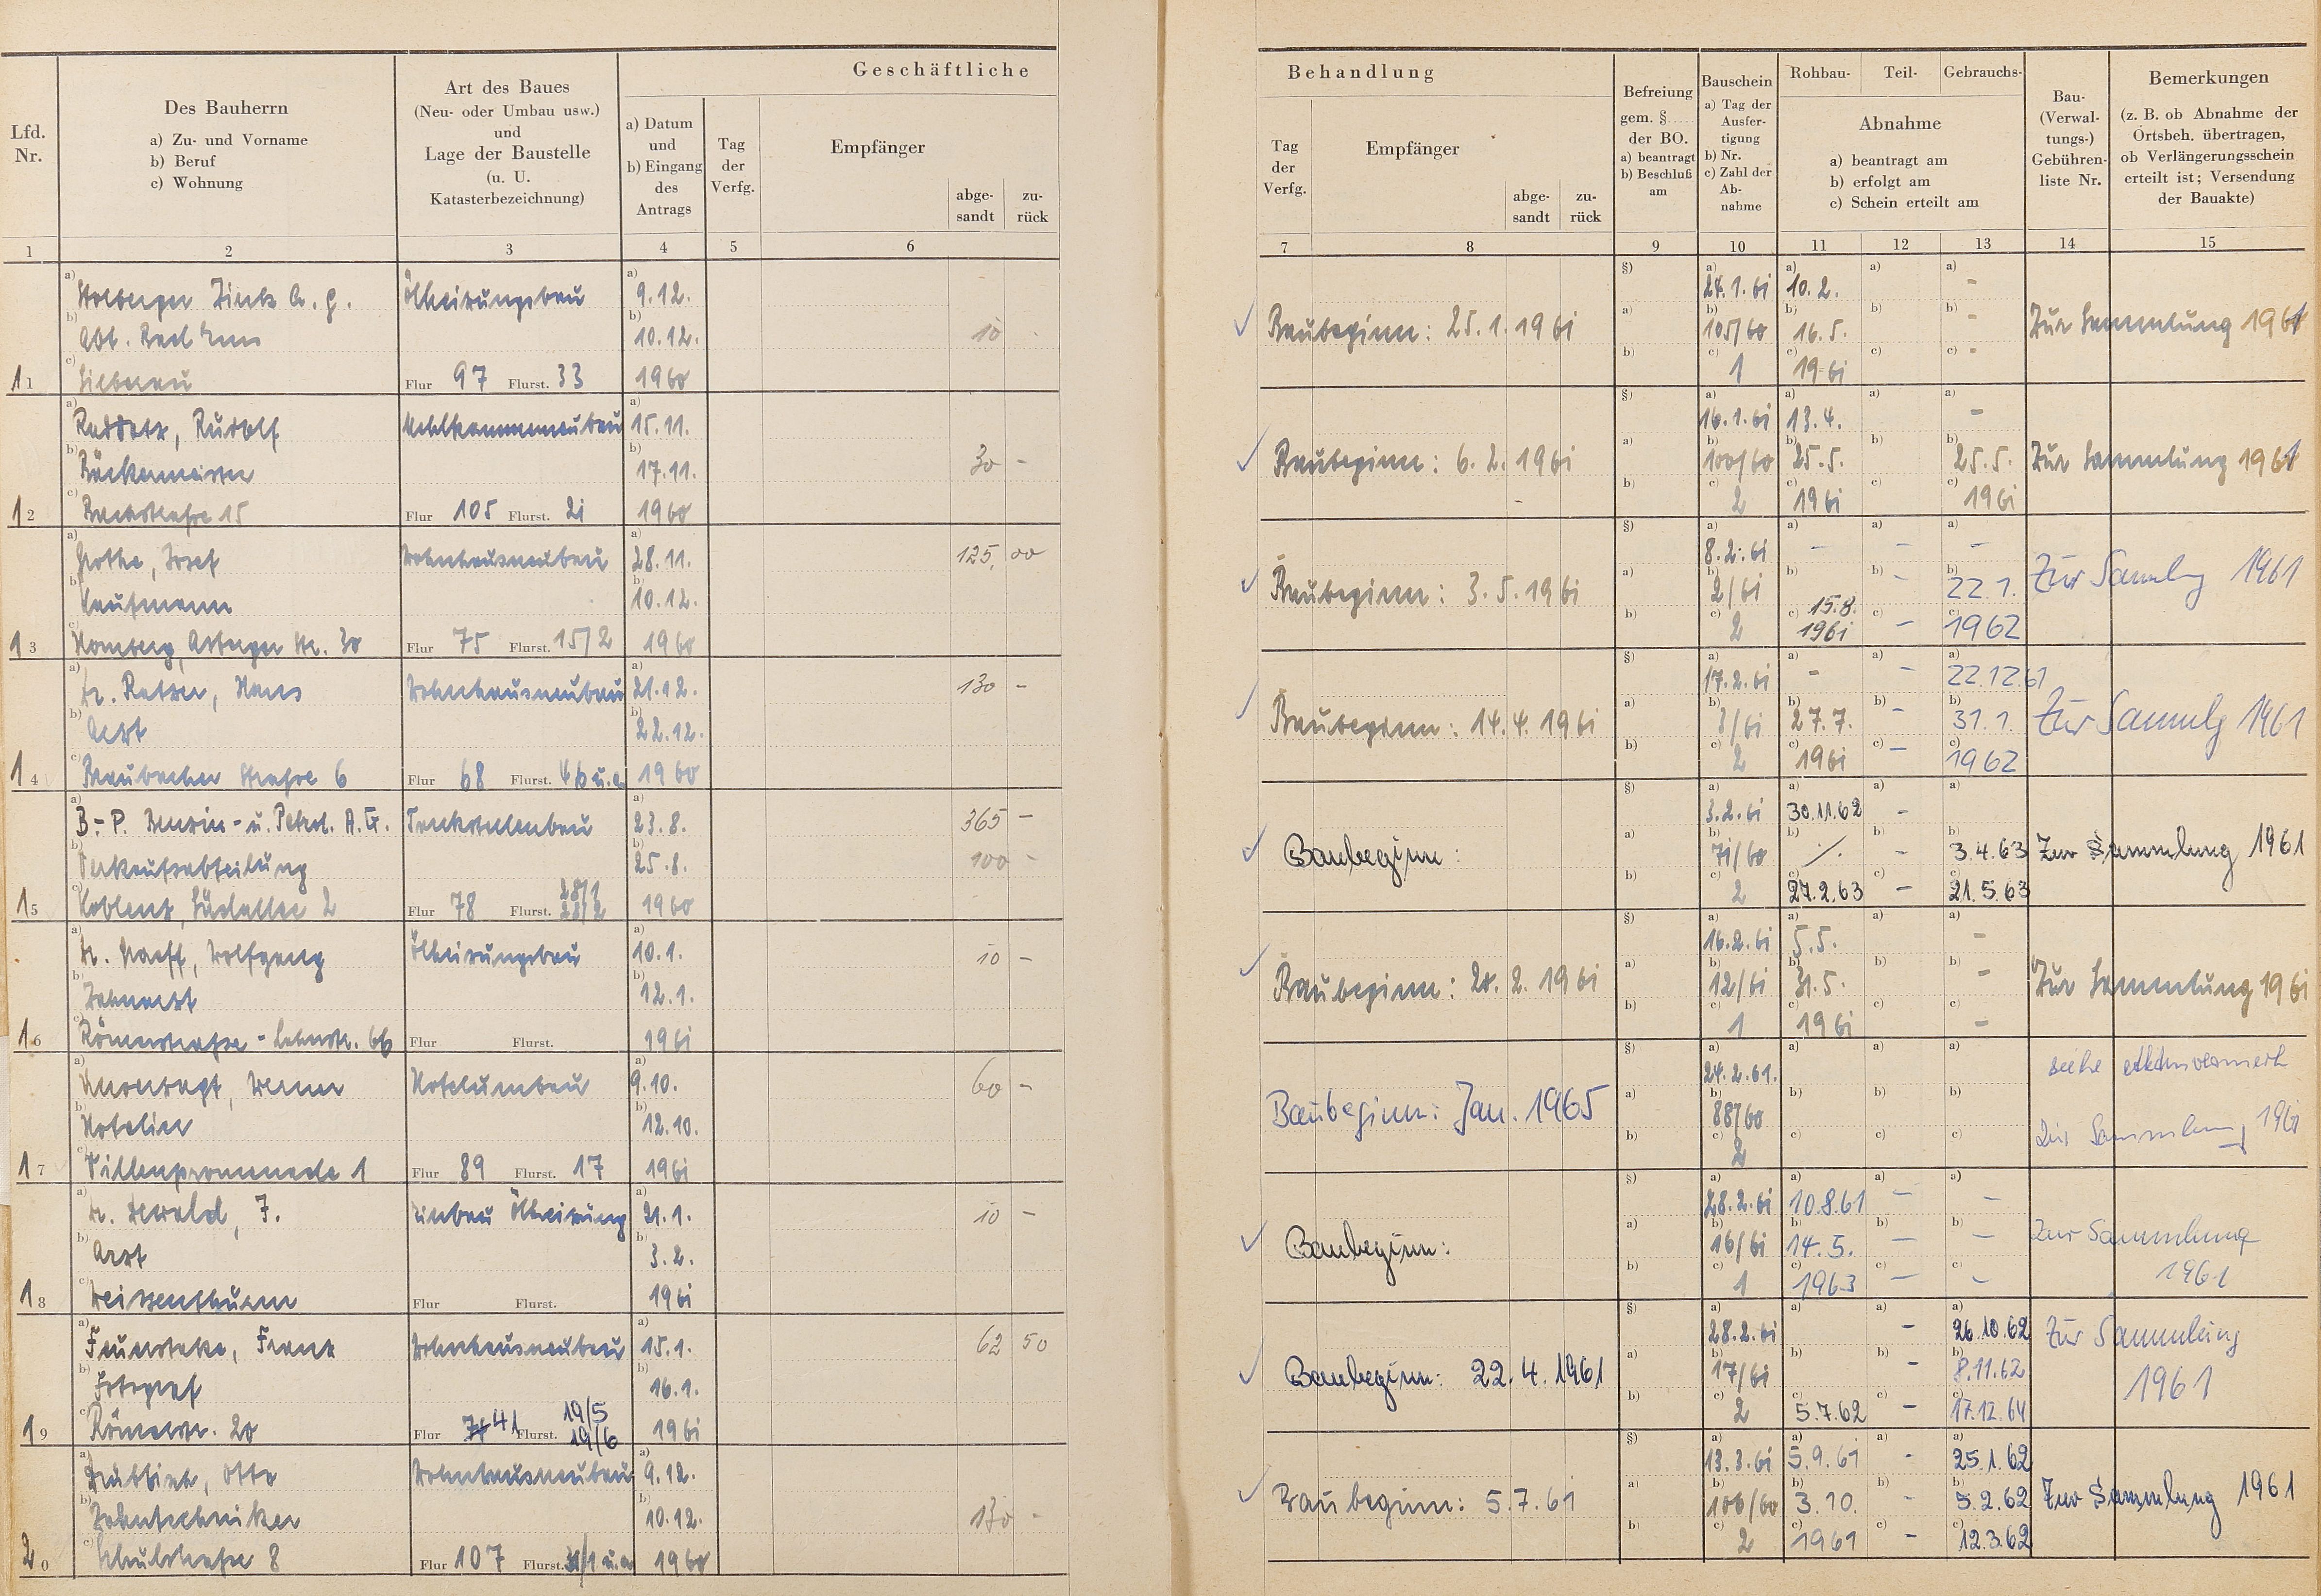 Geschäftliche
Lfd. Nr.
Des Bauherrn
a) Zu- und Vorname
b) Beruf
c) Wohnung
Art des Baues
(Neu- oder Umbau usw.)
und
Lage der Baustelle
(u. U.
Katasterbezeichnung)
a) Datum
und
b) Eingang
des
Antrags
Tag
der
Verfg.
Empfänger
abge-
sandt
zu-
rück
1 2 3 4 5 6
a) Stolberger Zink A. G. Ölheizungsbau a) 9.12.
b) Abt. Bad Ems b) 10.12. 10
11 c) Flur 97 Flurst. 33 1960
a) Raddatz, Rudolf a) 15.11.
b) Bäckermeister b) 17.11. 30 -
12 c) Flur 105 Flurst. 21 1960
a) Grothe, Josef Wohnhausneubau a) 28.11. 125,00
b) Kaufmann b) 10.12.
13 c) Homberg, Asberger Str. 30 Flur 75 Flurst. 15/2 1960
a) Dr. Hans Wohnhausneubau a) 21.12. 130 -
b) Arzt b) 22.12.
14 c) Braubacher Strasse 6 Flur 68 Flurst. 1960
a) B.-P. Benzin- u. Petrol. A.G. Tankstellenbau a) 23.8. 365 -
b) Verkaufsabteilung b) 25.8. 100 -
15 c) Koblenz, Südallee 2 Flur 78 Flurst. 28/1 28/2 1960
a) Dr. Wolfgang Ölheizungsbau a) 10.1. 10 -
b) Zahnarzt b) 12.1.
16 c) Römerstrasse - Lahnstr. Flur Flurst. 1961
a) Werner Hotelumbau a) 9.10. 60 -
b) Hotelier b) 12.10.
17 c) Villenpromenade 1 Flur 89 Flurst. 17 1961
a) Dr. Ewald, F. Einbau Ölheizung a) 31.1. 10 -
b) Arzt b) 3.2.
18 c) Weissenthurm Flur Flurst. 1961
a) Feuerstake, Franz Wohnhausneubau a) 15.1. 62 50
b) Fotograf b) 16.1.
19 c) Römerstr. 20 Flur 41 Flurst. 19/5 19/6 1961
a) Otto Wohnhausneubau a) 9.12.
b) Zahntechniker b) 10.12. 130 -
20 c) Schulstrasse 8 Flur 107 Flurst. 1960
Behandlung
Tag
der
Verfg.
Empfänger
abge-
sandt
zu-
rück
Befreiung
gem. §.....
der BO.
a) beantragt
b) Beschluß
am
Bauschein
a) Tag der
Ausfer-
tigung
b) Nr.
c) Zahl der
Ab-
nahme
Rohbau- Teil- Gebrauchs-
Abnahme
a) beantragt am
b) erfolgt am
c) Schein erteilt am
Bau-
(Verwal-
tungs-)
Gebühren-
liste Nr.
Bemerkungen
(z. B. ob Abnahme der
Ortsbeh. übertragen,
ob Verlängerungsschein
erteilt ist; Versendung
der Bauakte)
7 8 9 10 11 12 13 14 15
§) a) 24.1.61 a) 10.2. a) a) -
Baubeginn: 25.1.1961 a) b) 105/60 b) 16.5. b) b) - Zur Sammlung 1961
b) c) 1 c) 1961 c) c) -
§) a) 16.1.61 a) 13.4. a) a) -
Baubeginn: 6.2.1961 a) b) 100/60 b) 25.5. b) b) 25.5. Zur Sammlung 1961
b) c) 2 c) 1961 c) c) 1961
§) a) 8.2.61 a) - a) - a) -
Baubeginn: 3.5.1961 a) b) 2/61 b) b) - b) 22.1. Zur Sammlg 1961
b) c) 2 c) 15.8. 1961 c) - c) 1962
§) a) 17.2.61 a) - a) - a) 22.12.61
Baubeginn: 14.4.1961 a) b) 3/61 b) 27.7. b) - b) 31.1. Zur Sammlg 1961
b) c) 2 c) 1961 c) - c) 1962
§) a) 3.2.61 a) 30.11.62 a) - a)
Baubeginn: a) b) 71/60 b) ./. b) - b) 3.4.63 Zur Sammlung 1961
b) c) 2 c) 27.2.63 c) - c) 21.5.63
§) a) 16.2.61 a) 5.5. a) a) -
Baubeginn: 20.2.1961 a) b) 12/61 b) 31.5. b) b) - Zur Sammlung 1961
b) c) 1 c) 1961 c) c) -
§) a) 24.2.61. a) a) a) siehe Aktenvermerk
Baubeginn: Jan. 1965 a) b) 88/60 b) b) b)
b) c) 2 c) c) c) Zur Sammlung 1961
§) a) 28.2.61 a) 10.8.61 a) - a) -
Baubeginn: a) b) 16/61 b) 14.5. b) - b) - Zur Sammlung
b) c) 1 c) 1963 c) - c) - 1961
§) a) 28.2.61 a) a) - a) 26.10.62 Zur Sammlung
Baubeginn: 22.4.1961 a) b) 17/61 b) b) - b) 8.11.62 1961
b) c) 2 c) 5.7.62 c) - c) 17.12.64
§) a) 13.3.61 a) 5.9.61 a) - a) 25.1.62
Baubeginn: 5.7.61 a) b) 106/60 b) 3.10. b) - b) 5.2.62 Zur Sammlung 1961
b) c) 2 c) 1961 c) - c) 12.3.62